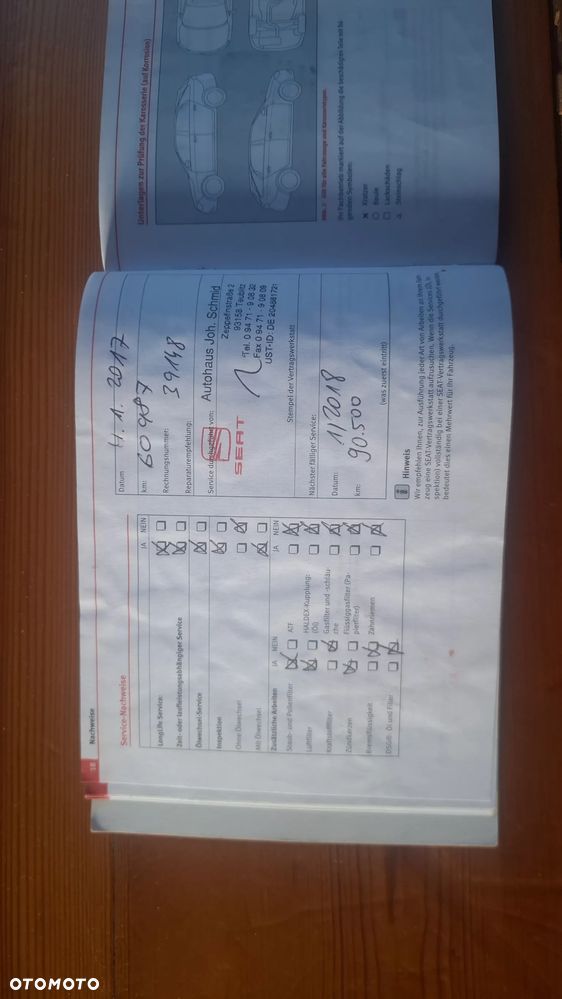 18 Nachweise
Service-Nachweise
JA NEIN
LongLife Service:
Zeit- oder laufleistungsabhängiger Service
Ölwechsel-Service
Inspektion
Ohne Ölwechsel
Mit Ölwechsel
Zusätzliche Arbeiten JA NEIN JA NEIN
Staub- und Pollenfilter ATF
Luftfilter HALDEX-Kupplung: (Öl)
Kraftstofffilter Gasfilter und -schläuche
Zündkerzen Flüssiggasfilter (Papierfilter)
Bremsflüssigkeit Zahnriemen
DSG®: Öl und Filter
Datum 4.1.2017
km: 60987
Rechnungsnummer: 39148
Reparaturempfehlung:
Service durchgeführt von:
Autohaus Joh. Schmid
Zeppelinstraße 2
93158 Teublitz
Tel. 0 94 71 - 9 08 32
Fax 0 94 71 - 9 08 09
UST-ID: DE 204981721
SEAT
Stempel der Vertragswerkstatt
Nächster fälliger Service:
Datum: 1/2018
km: 90.500
(was zuerst eintritt)
i Hinweis
Wir empfehlen Ihnen, zur Ausführung jeder Art von Arbeiten an Ihrem
zeug eine SEAT-Vertragswerkstatt aufzusuchen. Wenn die Services
spektion) vollständig bei einer SEAT-Vertragswerkstatt durchgeführt
bedeutet dies einen Mehrwert für Ihr Fahrzeug.
Unterlagen zur Prüfung der Karosserie (auf Korrosion)
Ihr Fachbetrieb markiert auf der Abbildung die beschädigten Teile mit
genden Symbolen:
Kratzer
Beule
Lackschäden
Steinschlag
OTOMOTO